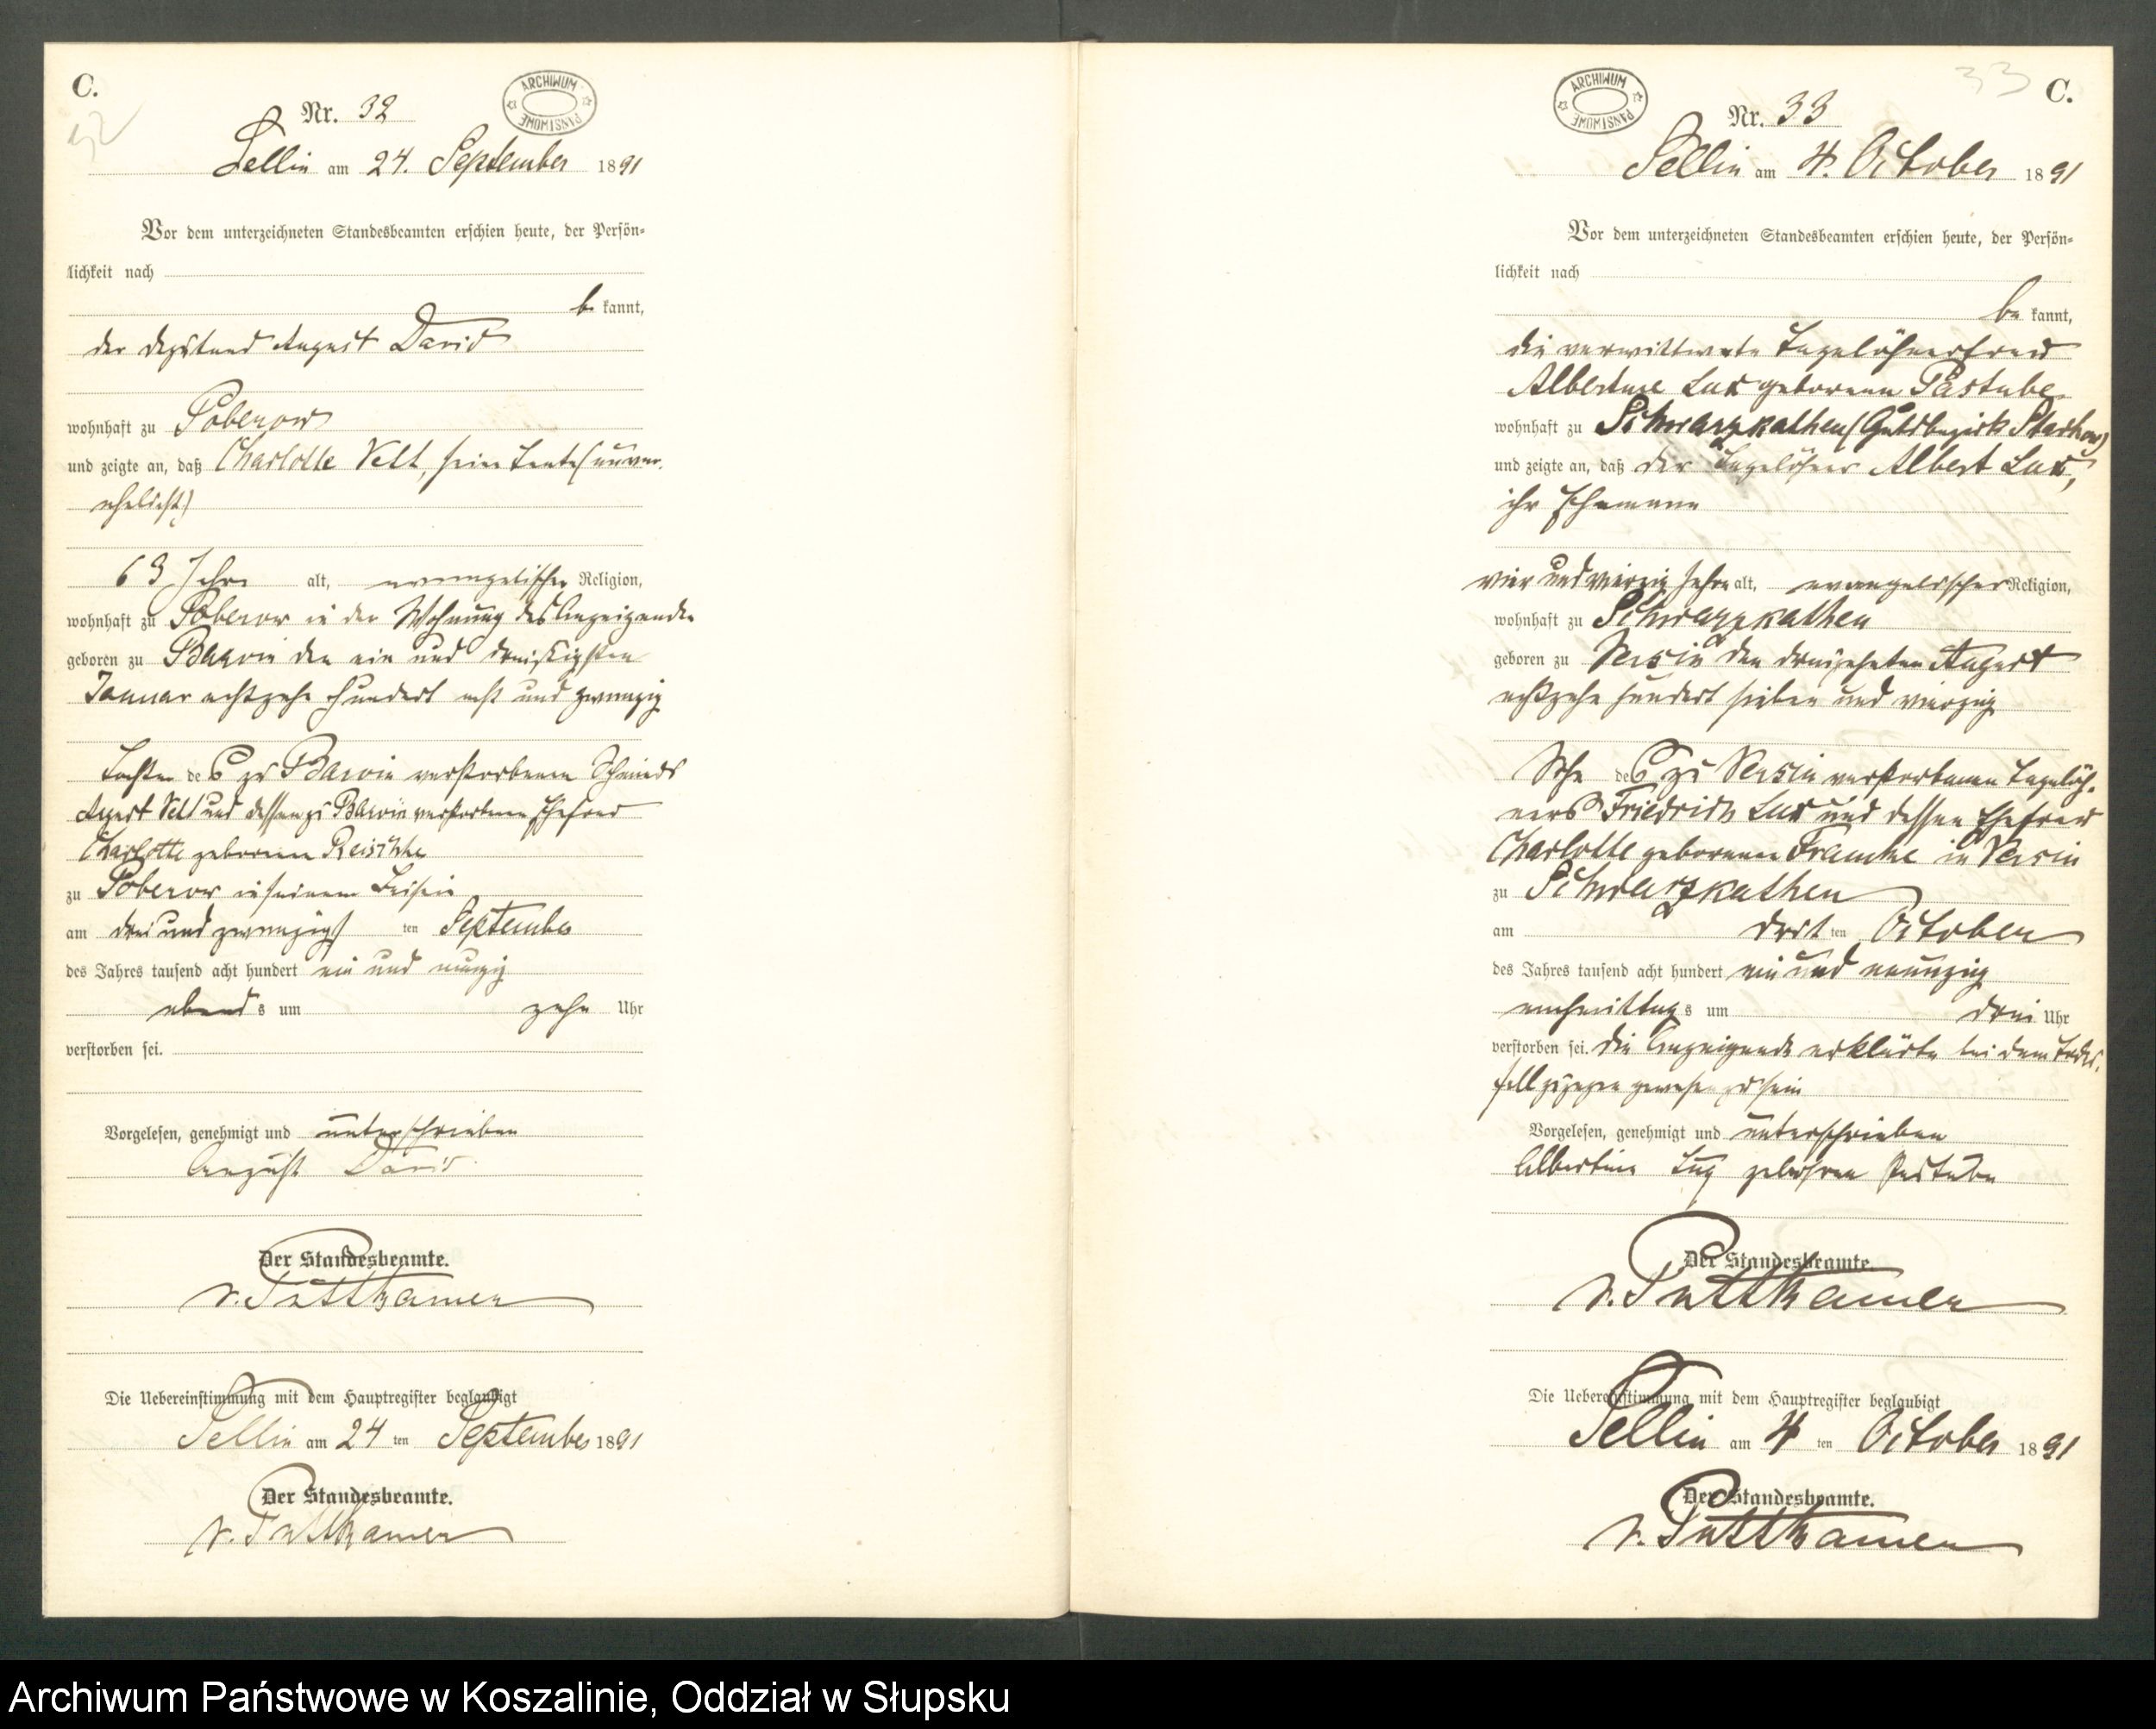 C.
32
Nr. 32
ARCHIWUM PAŃSTWOWE
Sellin am 24. September 1891
Vor dem unterzeichneten Standesbeamten erschien heute, der Persön-
lichkeit nach
be kannt,
der Deputant August David
wohnhaft zu Poberow
und zeigte an, daß Charlotte Velt, seine Tante (unver-
ehelicht)
63 Jahre alt, evangelischer Religion,
wohnhaft zu Poberow in der Wohnung des Anzeigenden
geboren zu Barvin den ein und dreißigsten
Januar achtzehn hundert acht und zwanzig
Tochter des zu Barvin verstorbenen Schmieds
August Velt und dessen zu Barvin verstorbenen Ehefrau
Charlotte geborenen
zu Poberow in seinem Beisein
am drei und zwanzigs ten September
des Jahres tausend acht hundert ein und neunzig
abends um zehn Uhr
verstorben sei.
Vorgelesen, genehmigt und unterschrieben
August David
Der Standesbeamte.
v. Puttkamer
Die Uebereinstimmung mit dem Hauptregister beglaubigt
Sellin am 24 ten September 1891
Der Standesbeamte.
v. Puttkamer
33
C.
ARCHIWUM PAŃSTWOWE
Nr. 33
Sellin am 4. October 1891
Vor dem unterzeichneten Standesbeamten erschien heute, der Persön-
lichkeit nach
be kannt,
die verwittwete Tagelöhnerfrau
Albertine Lux geborene Pastube
wohnhaft zu Schwarzkathen (Gutsbezirk Starkow)
und zeigte an, daß der Tagelöhner Albert Lux,
ihr Ehemann
vier und vierzig Jahre alt, evangelischer Religion,
wohnhaft zu Schwarzkathen
geboren zu Versin den dreizehnten August
achtzehn hundert sieben und vierzig
Sohn des zu Versin verstorbenen Tagelöh-
ners Friedrich Lux und dessen Ehefrau
Charlotte geborenen Franke in Versin
zu Schwarzkathen
am drit ten October
des Jahres tausend acht hundert ein und neunzig
nachmittags um drei Uhr
verstorben sei. Die Anzeigende erklärte bei dem Todes-
fall zugegen gewesen zu sein
Vorgelesen, genehmigt und unterschrieben
Albertine Lux geborene Pastube
Der Standesbeamte.
v. Puttkamer
Die Uebereinstimmung mit dem Hauptregister beglaubigt
Sellin am 4 ten October 1891
Der Standesbeamte.
v. Puttkamer
Archiwum Państwowe w Koszalinie, Oddział w Słupsku